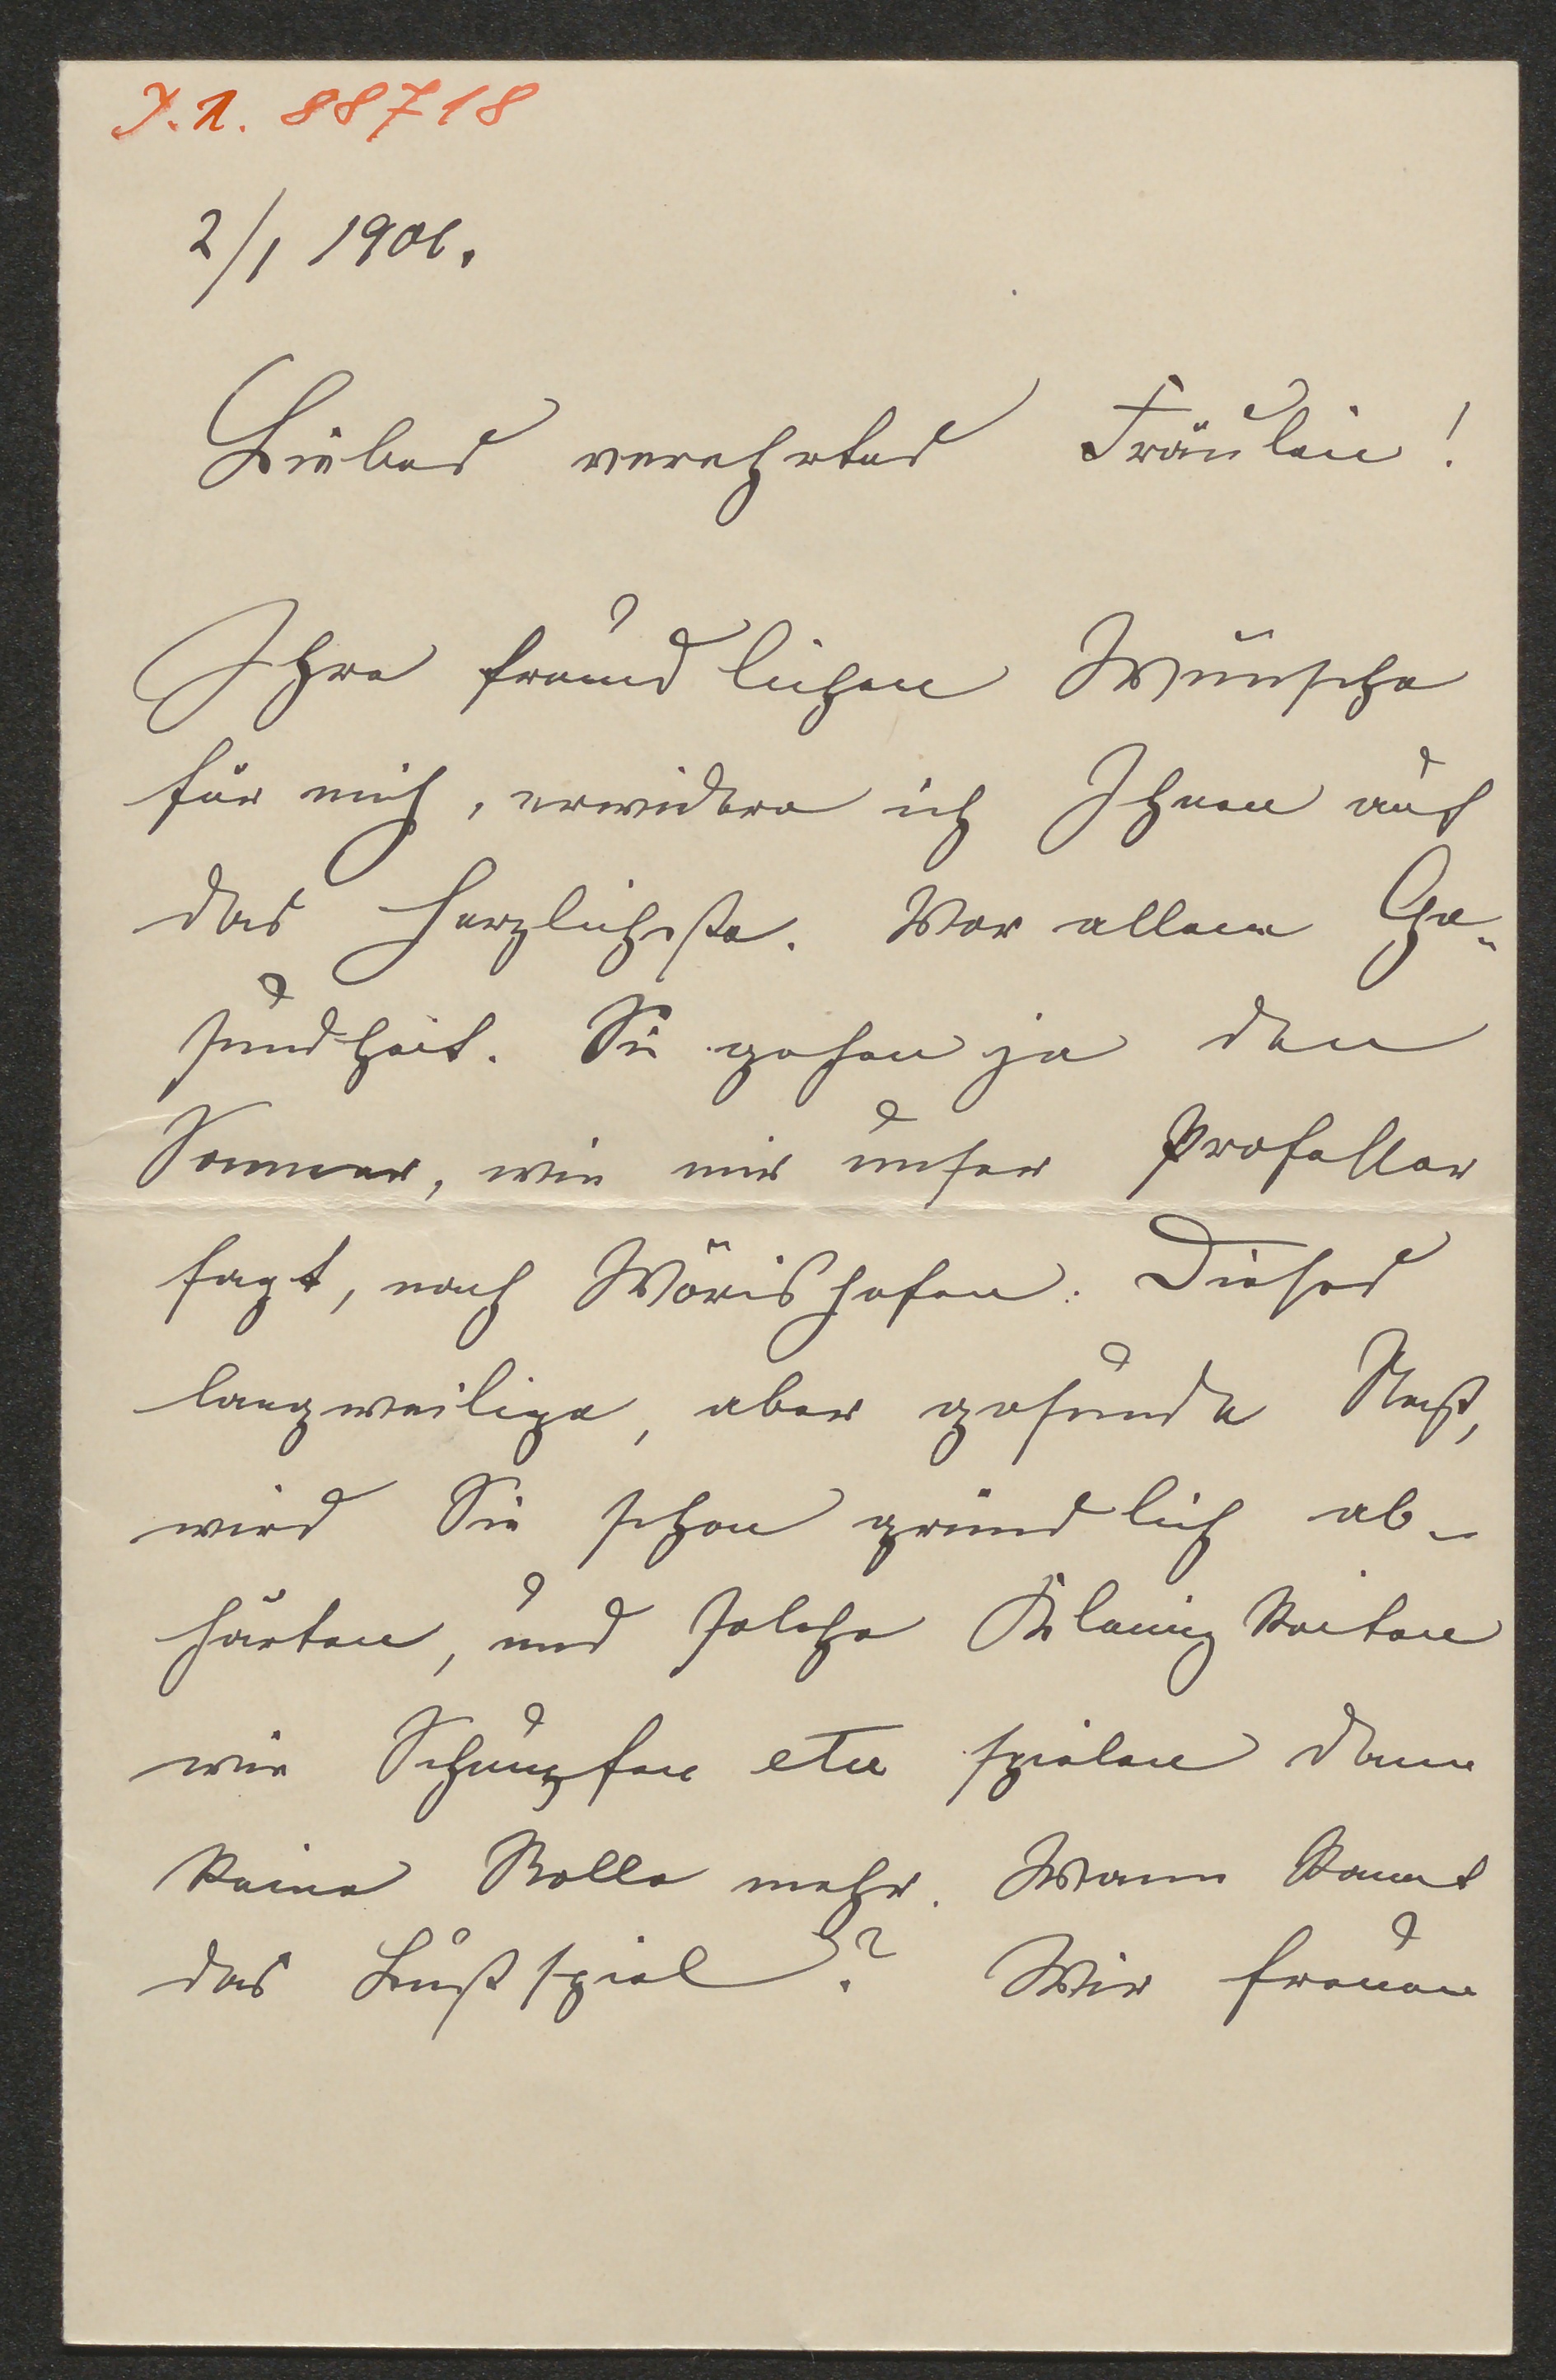 J. N. 88718
2/1 1906.
Liebes verehrtes Fräulein!
Ihre freundlichen Wünsche
für mich, erwidere ich Ihnen auf
das herzlichste. Vor allem Ge-
sundheit. Sie gehen ja den
Sommer, wie mir unser Professor
sagt, nach Wörishofen. Dieses
langweilige, aber gesunde Nest,
wird Sie schon gründlich ab-
härten, und solche Kleinigkeiten
wie Schnupfen etc spielen dann
keine Rolle mehr. Wann kommt
das Lustspiel? Wir freuen